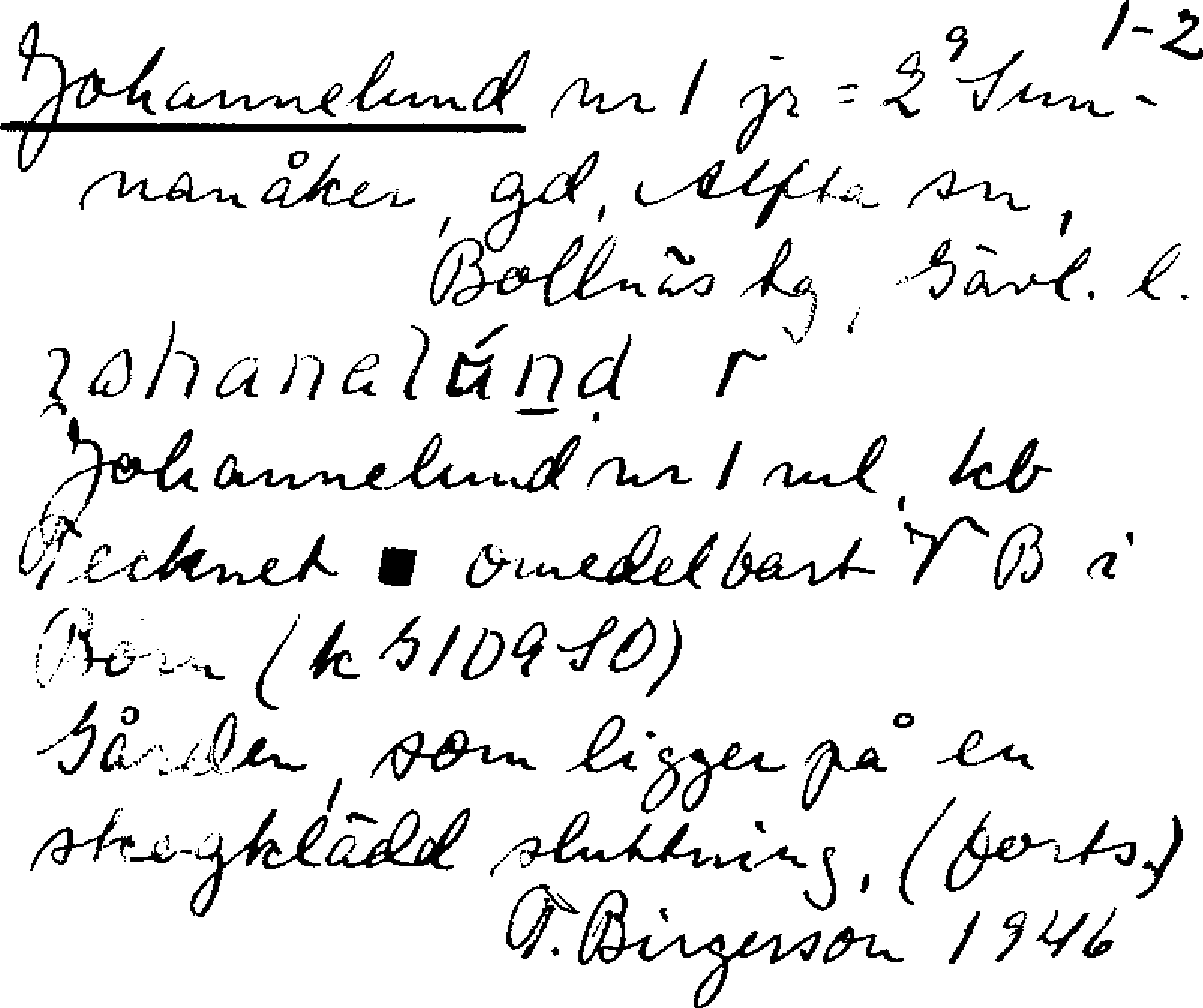 1-2
Johannelund nr 1 jr = 2⁹ Sun-
nanåker, gd, Alfta sn,
Bollnäs tg, Gävl. l.
Johannelund nr 1 ml, kb
Tecknet ■ omedelbart V B i
Börn (k G109SO)
Gården, som ligger på en
skogklädd sluttning, (forts.)
T. Birgerson 1946